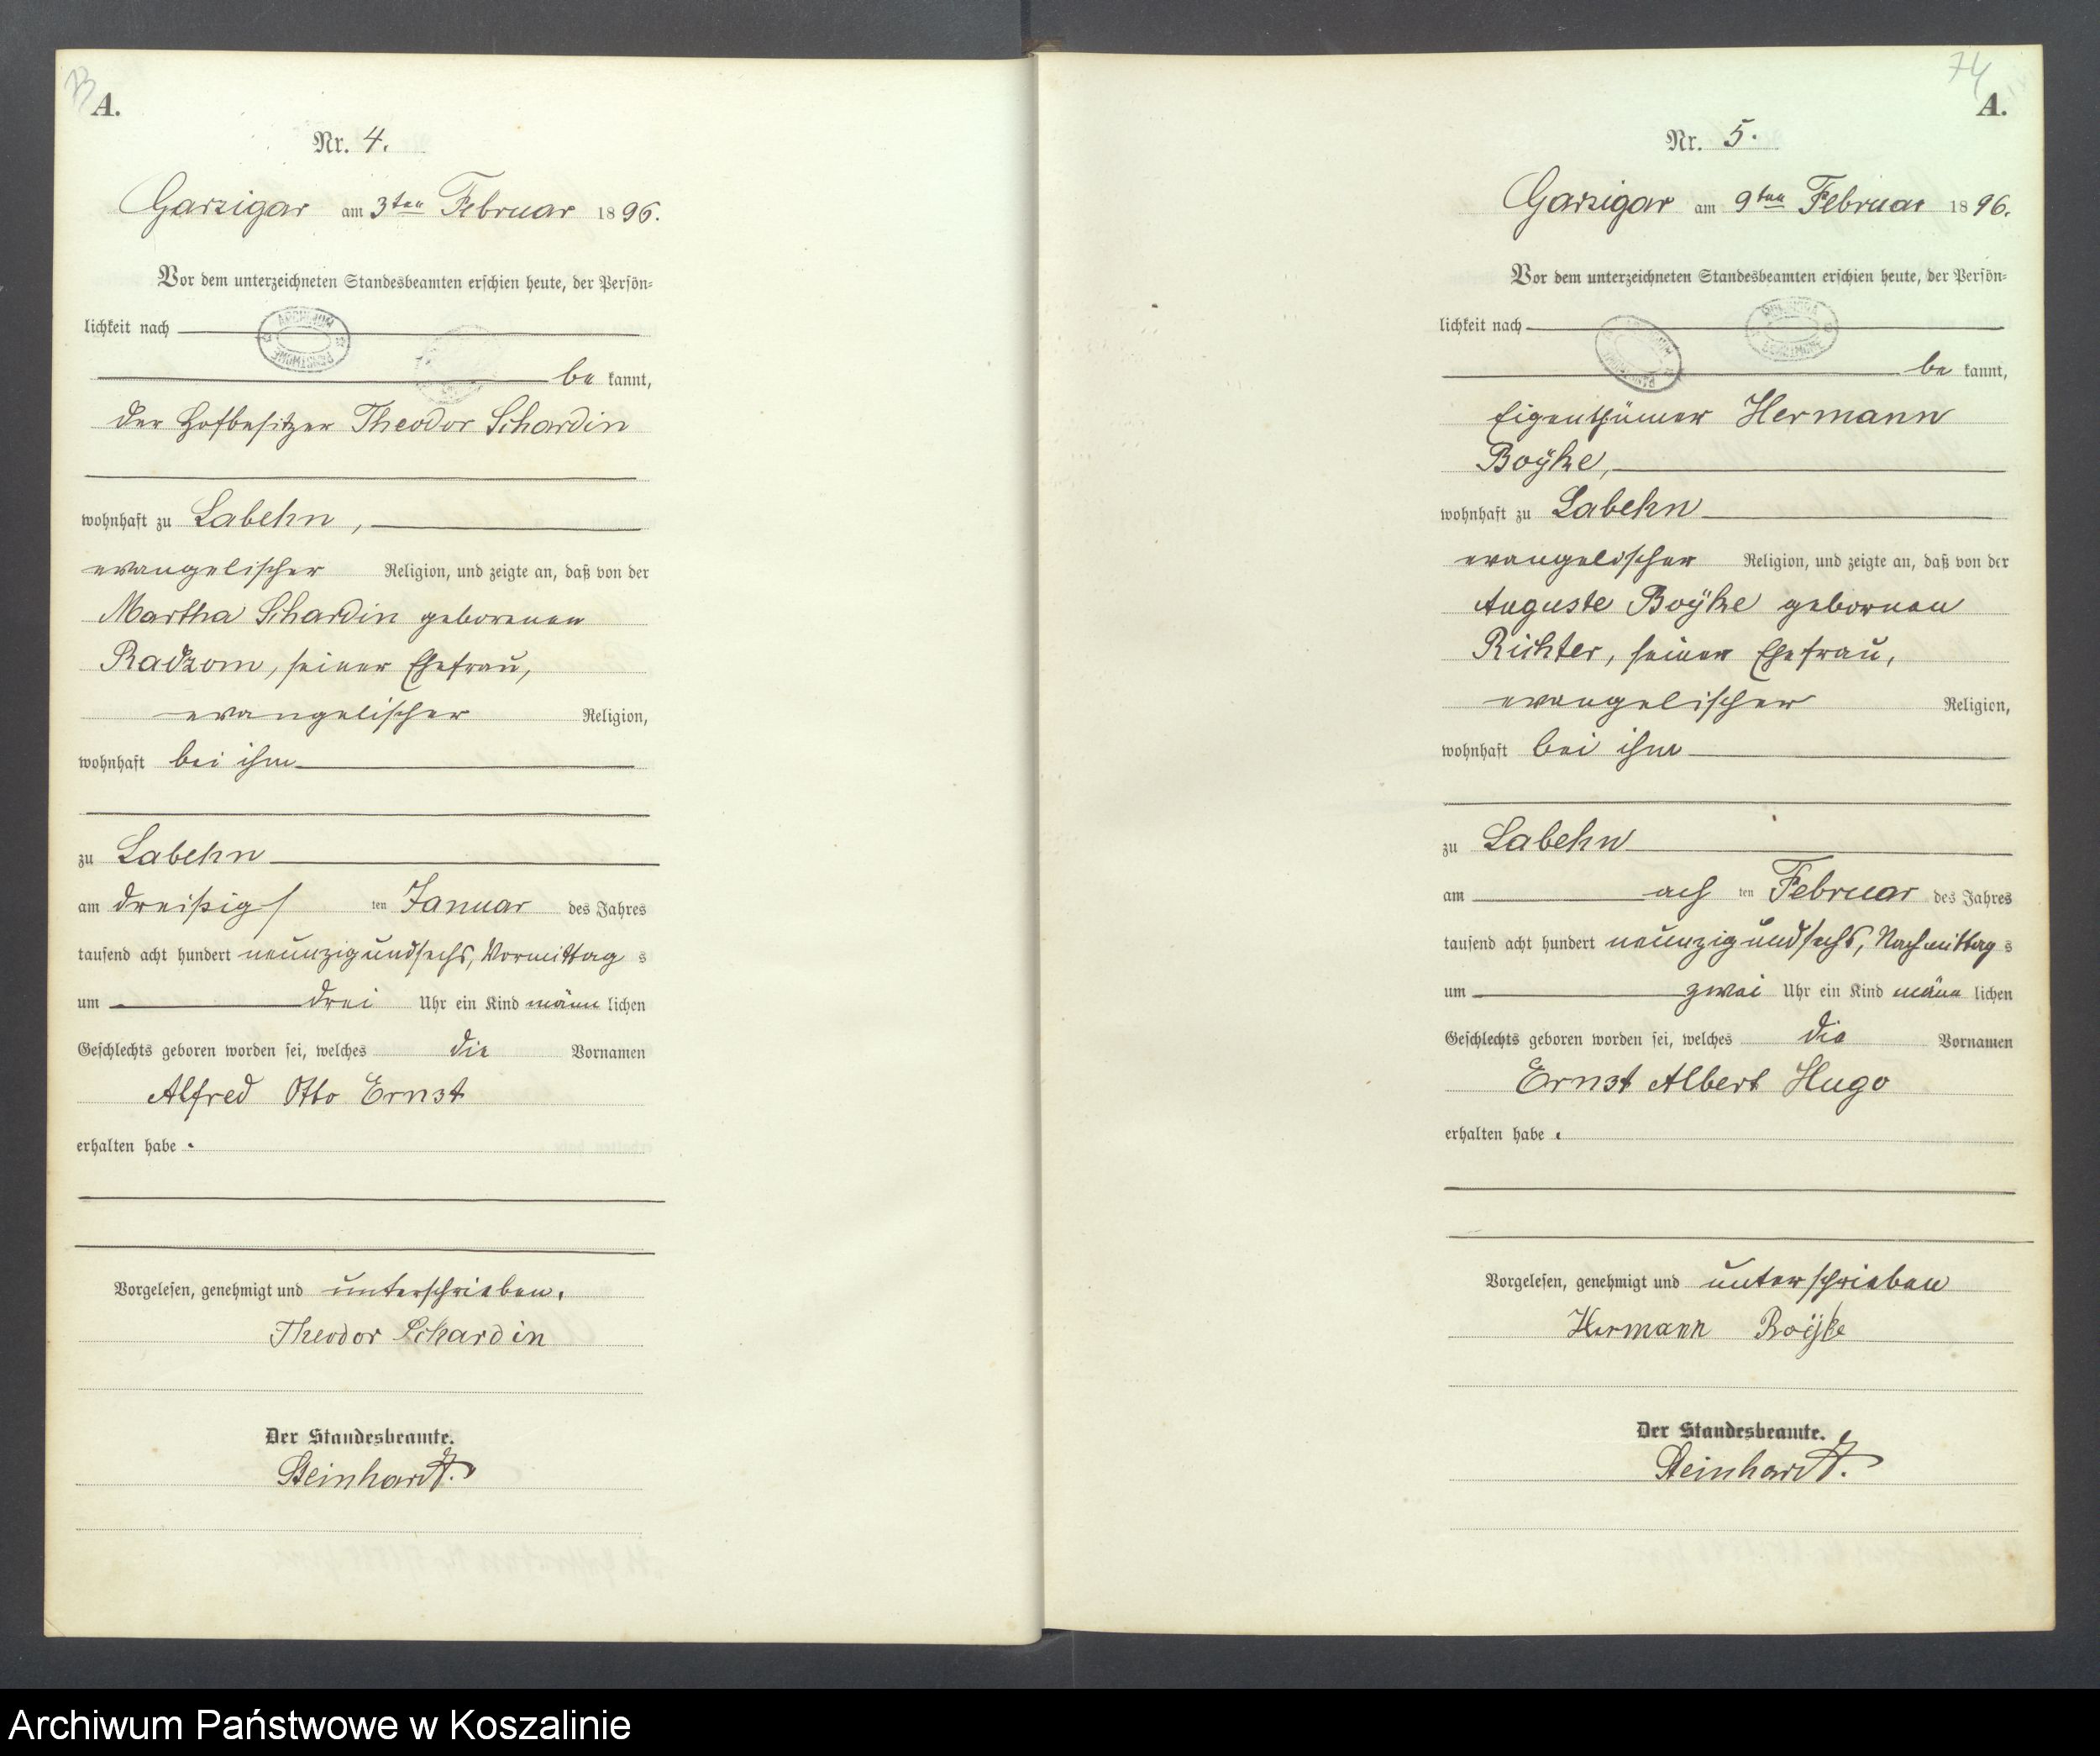 A.
Nr. 4.
Garzigar am 3ten Februar 1896.
Vor dem unterzeichneten Standesbeamten erschien heute, der Persön=
lichkeit nach
be kannt,
der Hofbesitzer Theodor Schardin
wohnhaft zu Labehn,
evangelischer Religion, und zeigte an, daß von der
Martha Schardin geborenen
Radzom, seiner Ehefrau,
evangelischer Religion,
wohnhaft bei ihm
zu Labehn
am dreißigs ten Januar des Jahres
tausend acht hundert neunzig und sechs, Vormittag s
um drei Uhr ein Kind männ lichen
Geschlechts geboren worden sei, welches die Vornamen
Alfred Otto Ernst
erhalten habe.
Vorgelesen, genehmigt und unterschrieben.
Theodor Schardin
Der Standesbeamte.
Steinhardt.
74
A.
Nr. 5.
Garzigar am 9ten Februar 1896.
Vor dem unterzeichneten Standesbeamten erschien heute, der Persön=
lichkeit nach
be kannt,
Eigenthümer Hermann
Boÿke,
wohnhaft zu Labehn
evangelischer Religion, und zeigte an, daß von der
Auguste Boÿke gebornen
Richter, seiner Ehefrau,
evangelischer Religion,
wohnhaft bei ihm
zu Labehn
am ach ten Februar des Jahres
tausend acht hundert neunzig und sechs, Nachmittag s
um zwei Uhr ein Kind männ lichen
Geschlechts geboren worden sei, welches die Vornamen
Ernst Albert Hugo
erhalten habe.
Vorgelesen, genehmigt und unterschrieben
Hermann Boÿke
Der Standesbeamte.
Steinhardt.
Archiwum Państwowe w Koszalinie